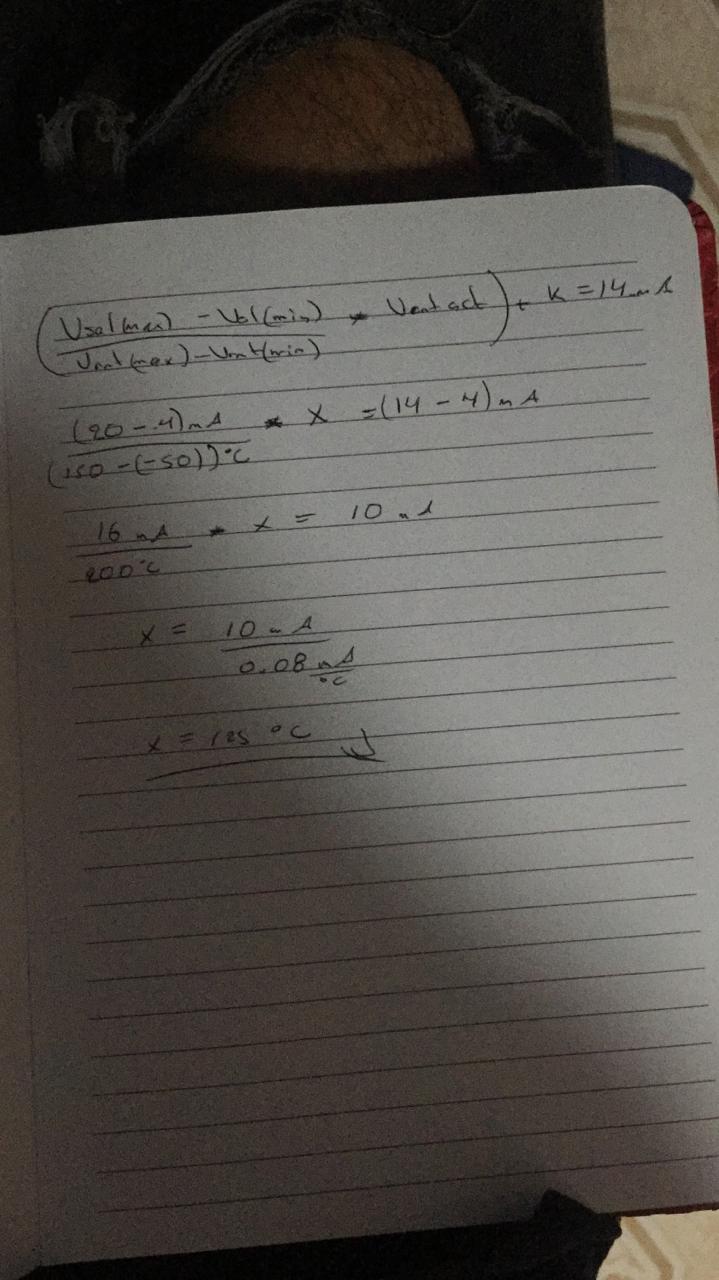 (Vsal(max) - Vsl(min) / Vent(max) - Vent(min) * Vent act) + K = 14 mA
(20 - 4)mA / (150 - (-50))°C * X = (14 - 4) mA
16 mA / 200°C * x = 10 mA
x = 10 mA / 0.08 mA/°C
x = 125 °C